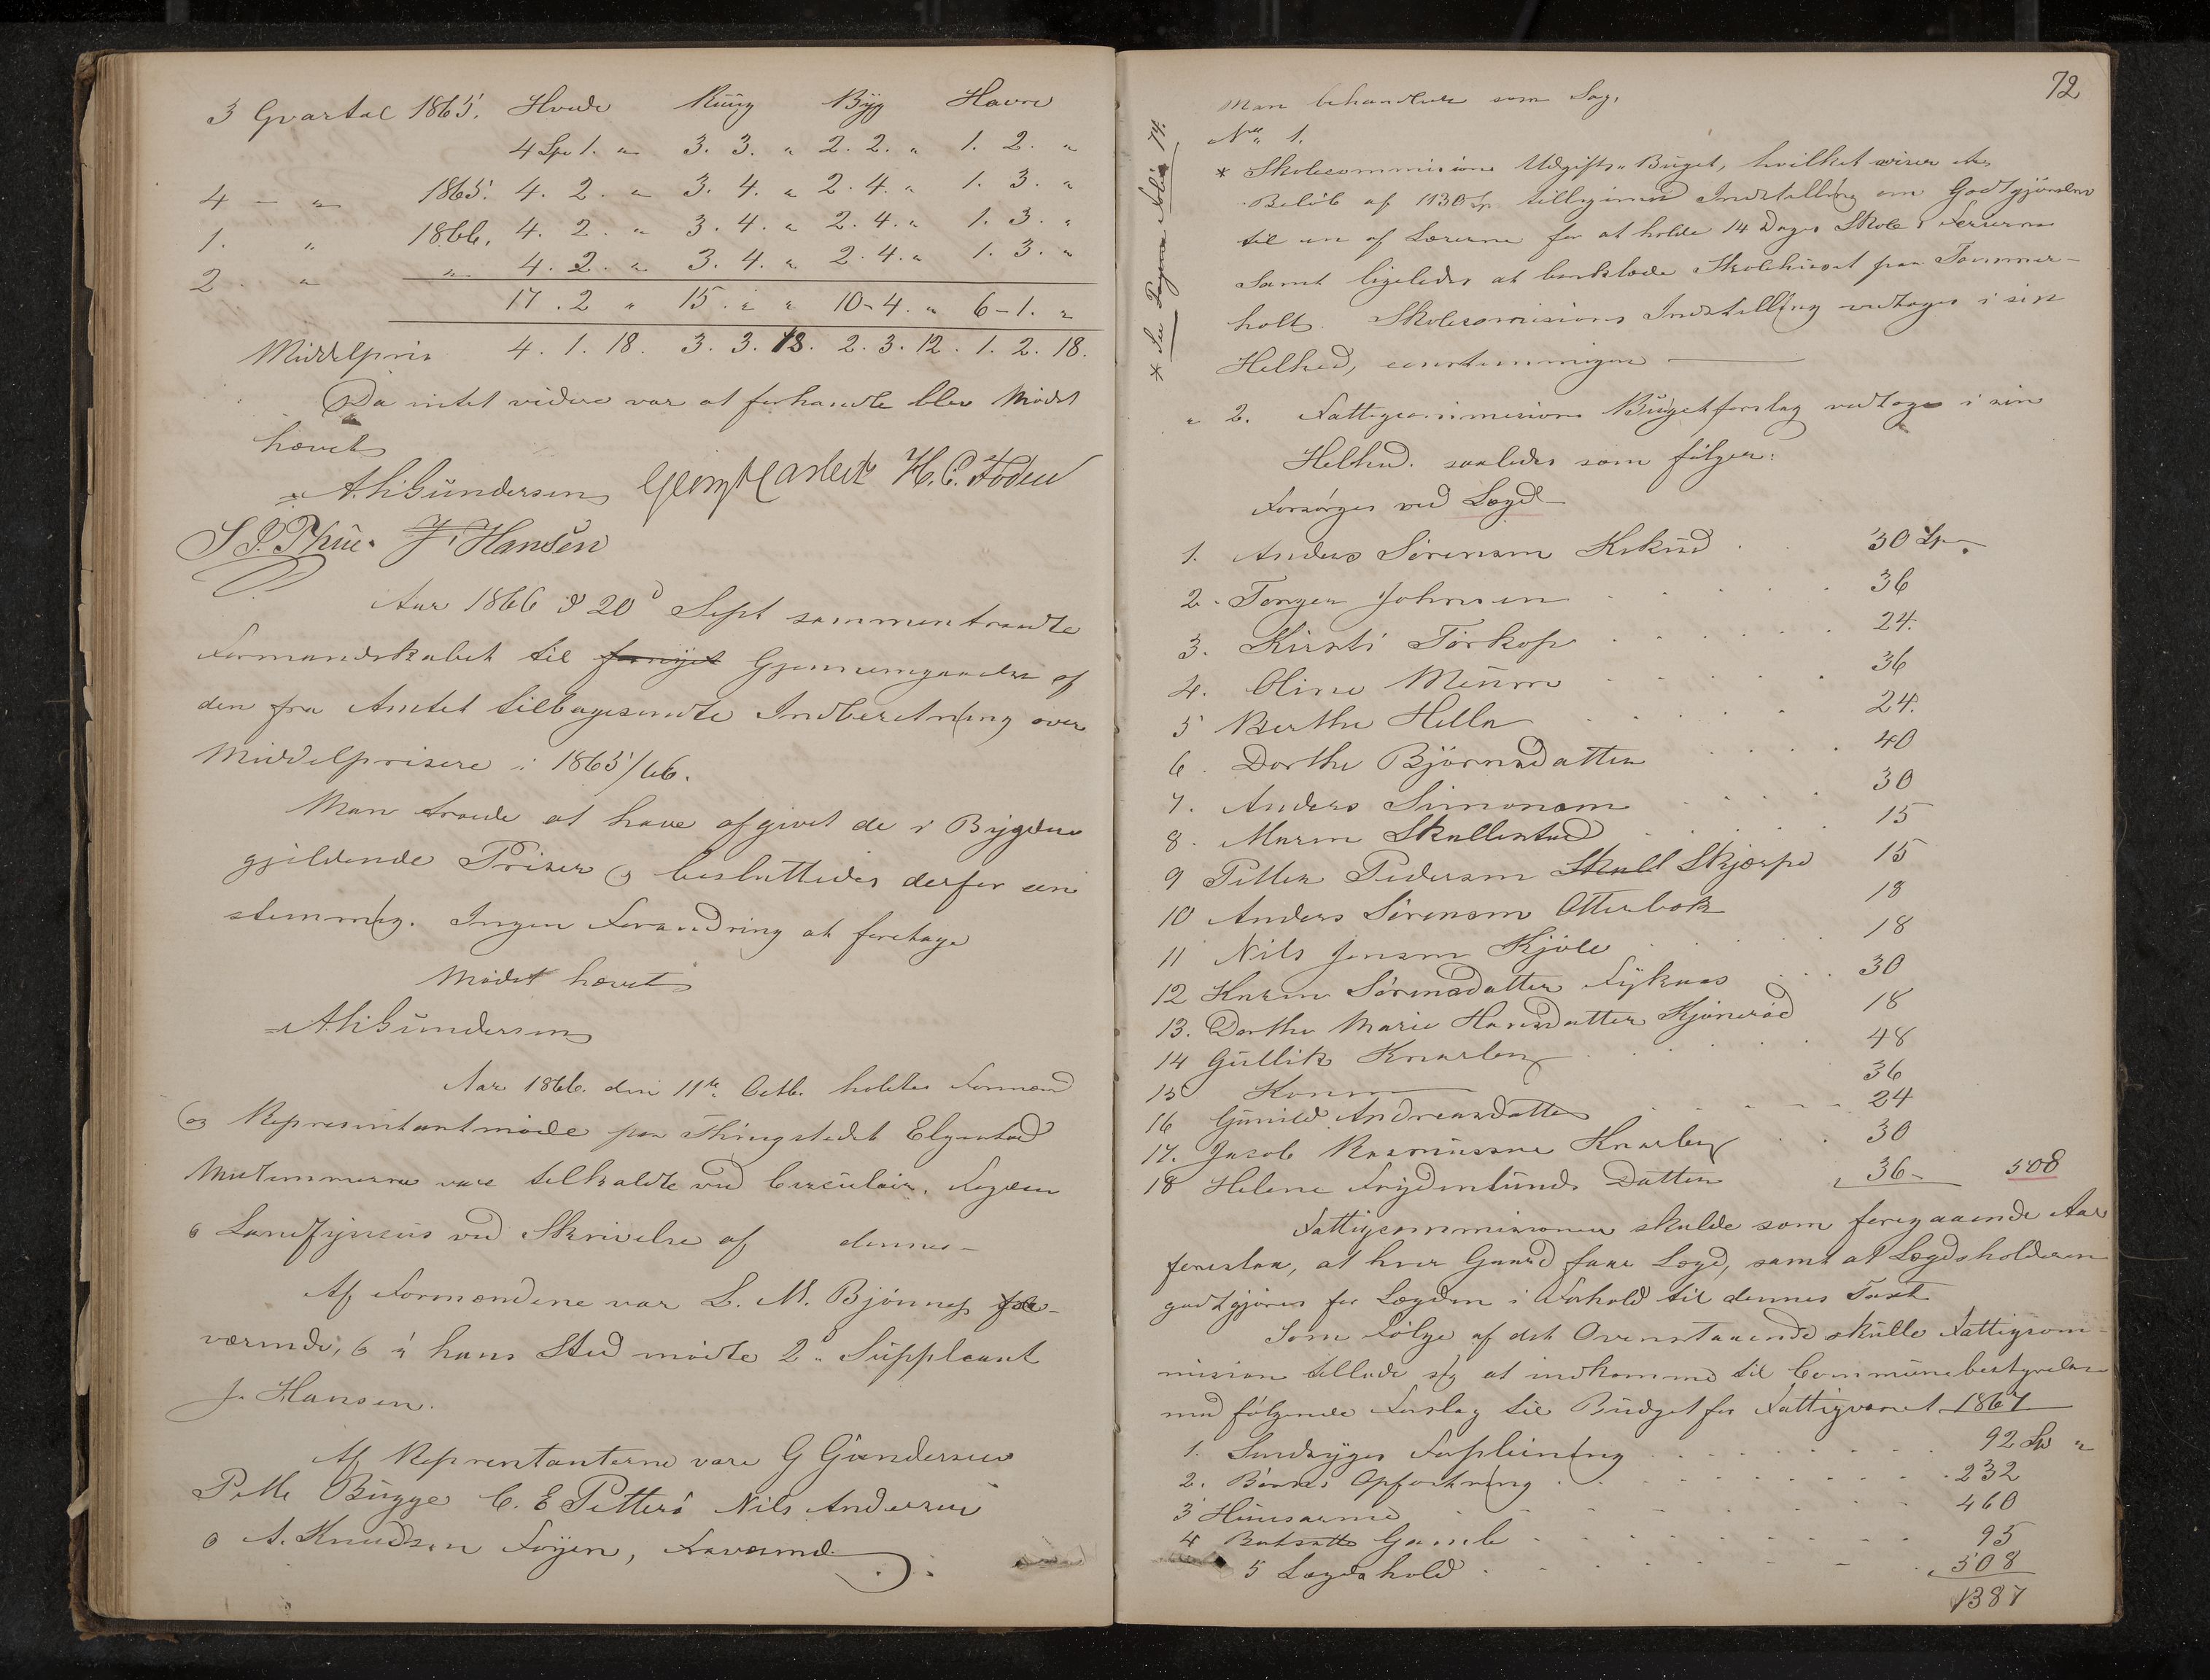 3 Qvartal 1865. Hvede Rüug Byg Havre
4 Sp 1. " 3. 3. " 2. 2. " 1. 2. "
4 – " 1865. 4. 2. " 3. 4. " 2. 4. " 1. 3. "
1. " 1866. 4. 2. " 3. 4. " 2. 4. " 1. 3. "
2. " " 4. 2. " 3. 4. " 2. 4. " 1. 3. "
17. 2 " 15. " " 10-4. " 6-1. "
Middelpris 4. 1. 18. 3. 3. 18. 2. 3. 12. 1. 2. 18.
Da intet videre var at forhandle blev Mödet
hævet
A. Gündersen H. C. Foden
J. Hansen
Aar 1866 d 20d Sept sammentraadte
Formandskabet til fornyet Gjennemgaaelse af
den fra Amtet tilbagesendte Indberetning over
Middelprisere i 1865/66.
Man troede at have afgivet de i Bygden
gjeldende Priser og besluttedes derfor een
stemmig. Ingen Forandring at foretage
Mödet hævet
A. Gündersen
Aar 1866. den 11te Octb. holdtes Formænd
og Repræsentantmöde paa Thingstedet Elgestad
vare tilkaldte ved Circülair, Fogden
o Landfysicus ved Skrivelse af dennes –
Af Formændene var L. M. Bjönnes fra-
værende, o i hans Sted mödte 2d Süppleant
J. Hansen.
Af Reprentanterne vare G Gündersen
Pette Bügge C. E Petterö Nils Andersen
o A. Knudsen Föyen, Fraværend.
72
Man behandlede som Sag.
No 1.
* See Pagina Folio 74.
* Skolecommisions Udgifts-Büget, hvilket viser et
Belöb af 1130 Sp tilligemed Indstilling om Godtgjörelse
til en af Lærerne for at holde 14 Dages Skole i Ferierne
Samt ligeledes at bordklæde Skolehüset paa Tömmer-
holt. Skolecomisions Indstilling vedtoges i sin
Helhed, eenstemmigen
" 2. Fattigcommisions Büdgetforslag vedtoges i sin
Helhed. saaledes som fölger:
Forsörges ved Lægd
1. Anders Sörensen 30 Sp.
2. Torger Johnsen 36
3. Kirsti Törkop 24.
4. Oline 36
5 Berthe Hella 24.
6. Dorthe Björnsdatter 40
7. Anders Simonsen 30
8. Maren Skallestad 15
9 Petter Pedersen Skall Skjærpe 15
10 Anders Sörensen Otterbek 18
11 Nils Jensen Kjöle 18
12 Karen Sörensdatter Fyknes 30
13. Dorthe Marie Hansdatter Kjöneröd 18
14 Güllik Knarberg 48
15 Konen 36
16 Günild Andreasdatter 24
17. Jacob Rasmüssen Knarberg 30
18 Helene Frydenlünds Datter 36– 508
Fattigcommisionen skulde som foregaaende Aar
foreslaa, at hver Gaard faar Lægd, samt at Lægdsholderen
godtgjöres for Lægden i Forhold til dennes Taxt
Som Fölge af det Ovenstaaende skülle Fattigcom-
mision tillade sig at indkomme til Commünebestyrelsen
med fölgende Forslag til Büdget for Fattigvæsnet 1867
1. Sindsyges Forpleining 92 Sp "
2. Börnes Opfostring 232
3 Hüüsarme 460
4 Bortsatte Gamle 95
5 Lægdshold 508
1387